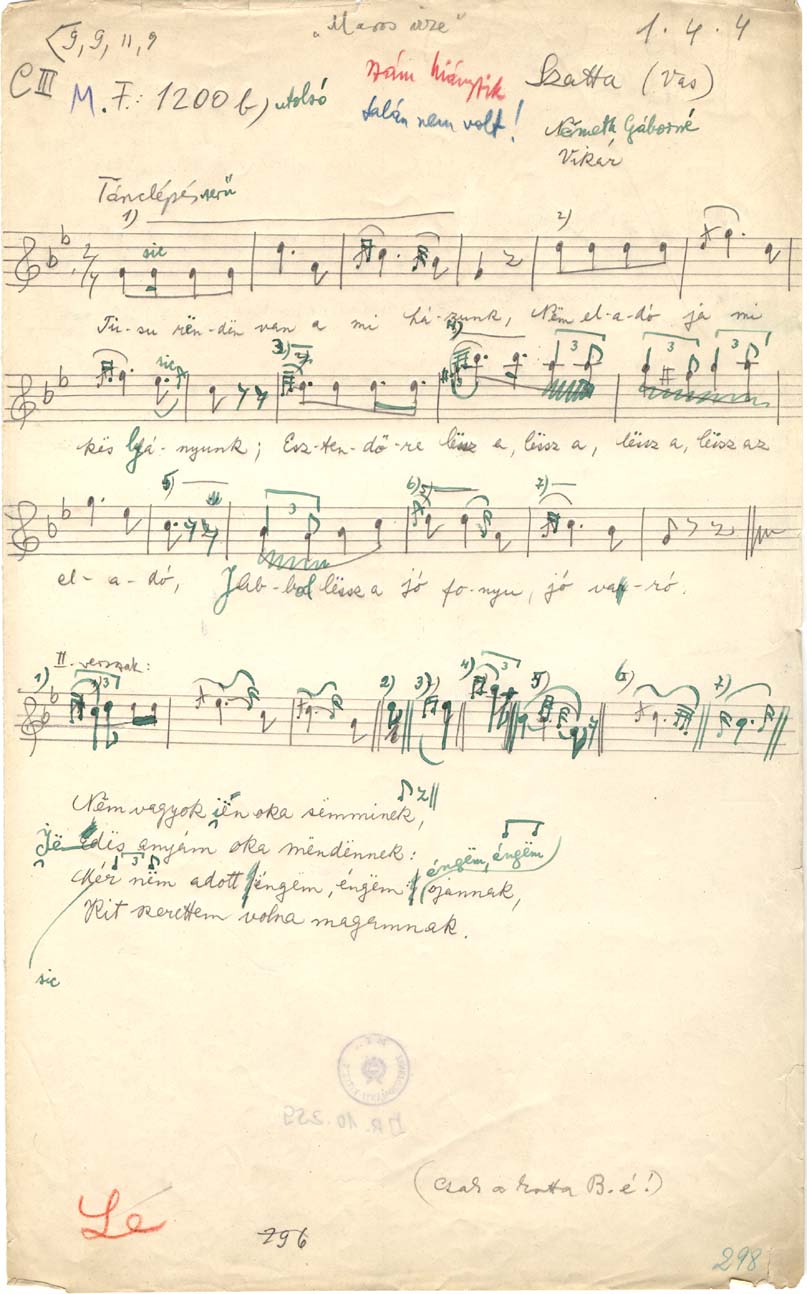 "Maros vize"
9, 9, 11, 9
1. 4. 4
C III
M. F.: 1200 b) utolsó
szám hiányzik
talán nem volt!
Szatta (Vas)
Németh Gáborné
Vikár
Tánclépésszerű
1) 2)
sic
Tü-su rën-dën van a mi há-zunk, Nëm el-a-dó ja mi
sic 3)
3 3 3
kis lyá-nyunk; Esz-ten-dő-re lësz a, lëssz a, lëssz a, lëssz az
5) 3 6) 7)
el-a-dó, Jab-bol lëssz a jó fo-nyu, jó var-ró.
II. versszak:
1) 3 2) 3) 4) 3 5) 6) 7)
Nëm vagyok ién oka sëmminek,
Jëdës anyám oka mëndënnek:
3 éngëm, éngëm
Mér nëm adott éngëm, éngëm ojannak,
Kit szerettem volna magamnak.
sic
(Csak a kotta B.-é!)
Lé
296
298